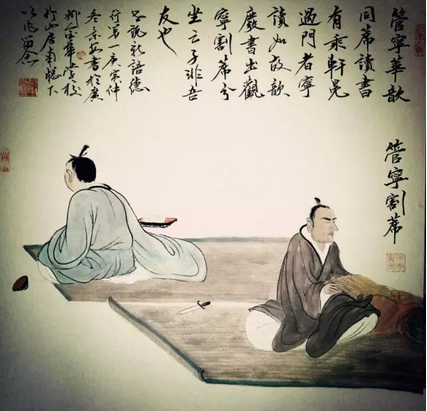 管寧華歆
同席讀書
有乘軒冕
過門者寧
讀如故歆
廢書出觀
寧割席分
坐云子非吾
友也
說新語德
行第一庚寅仲
冬書於廣
管寧割席